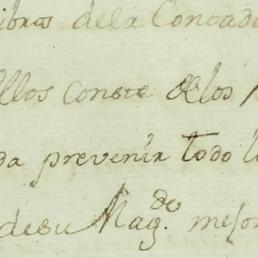 libros dela Contad
ellos conste delos
da prevenir todo l
desu Mag.^de mejor